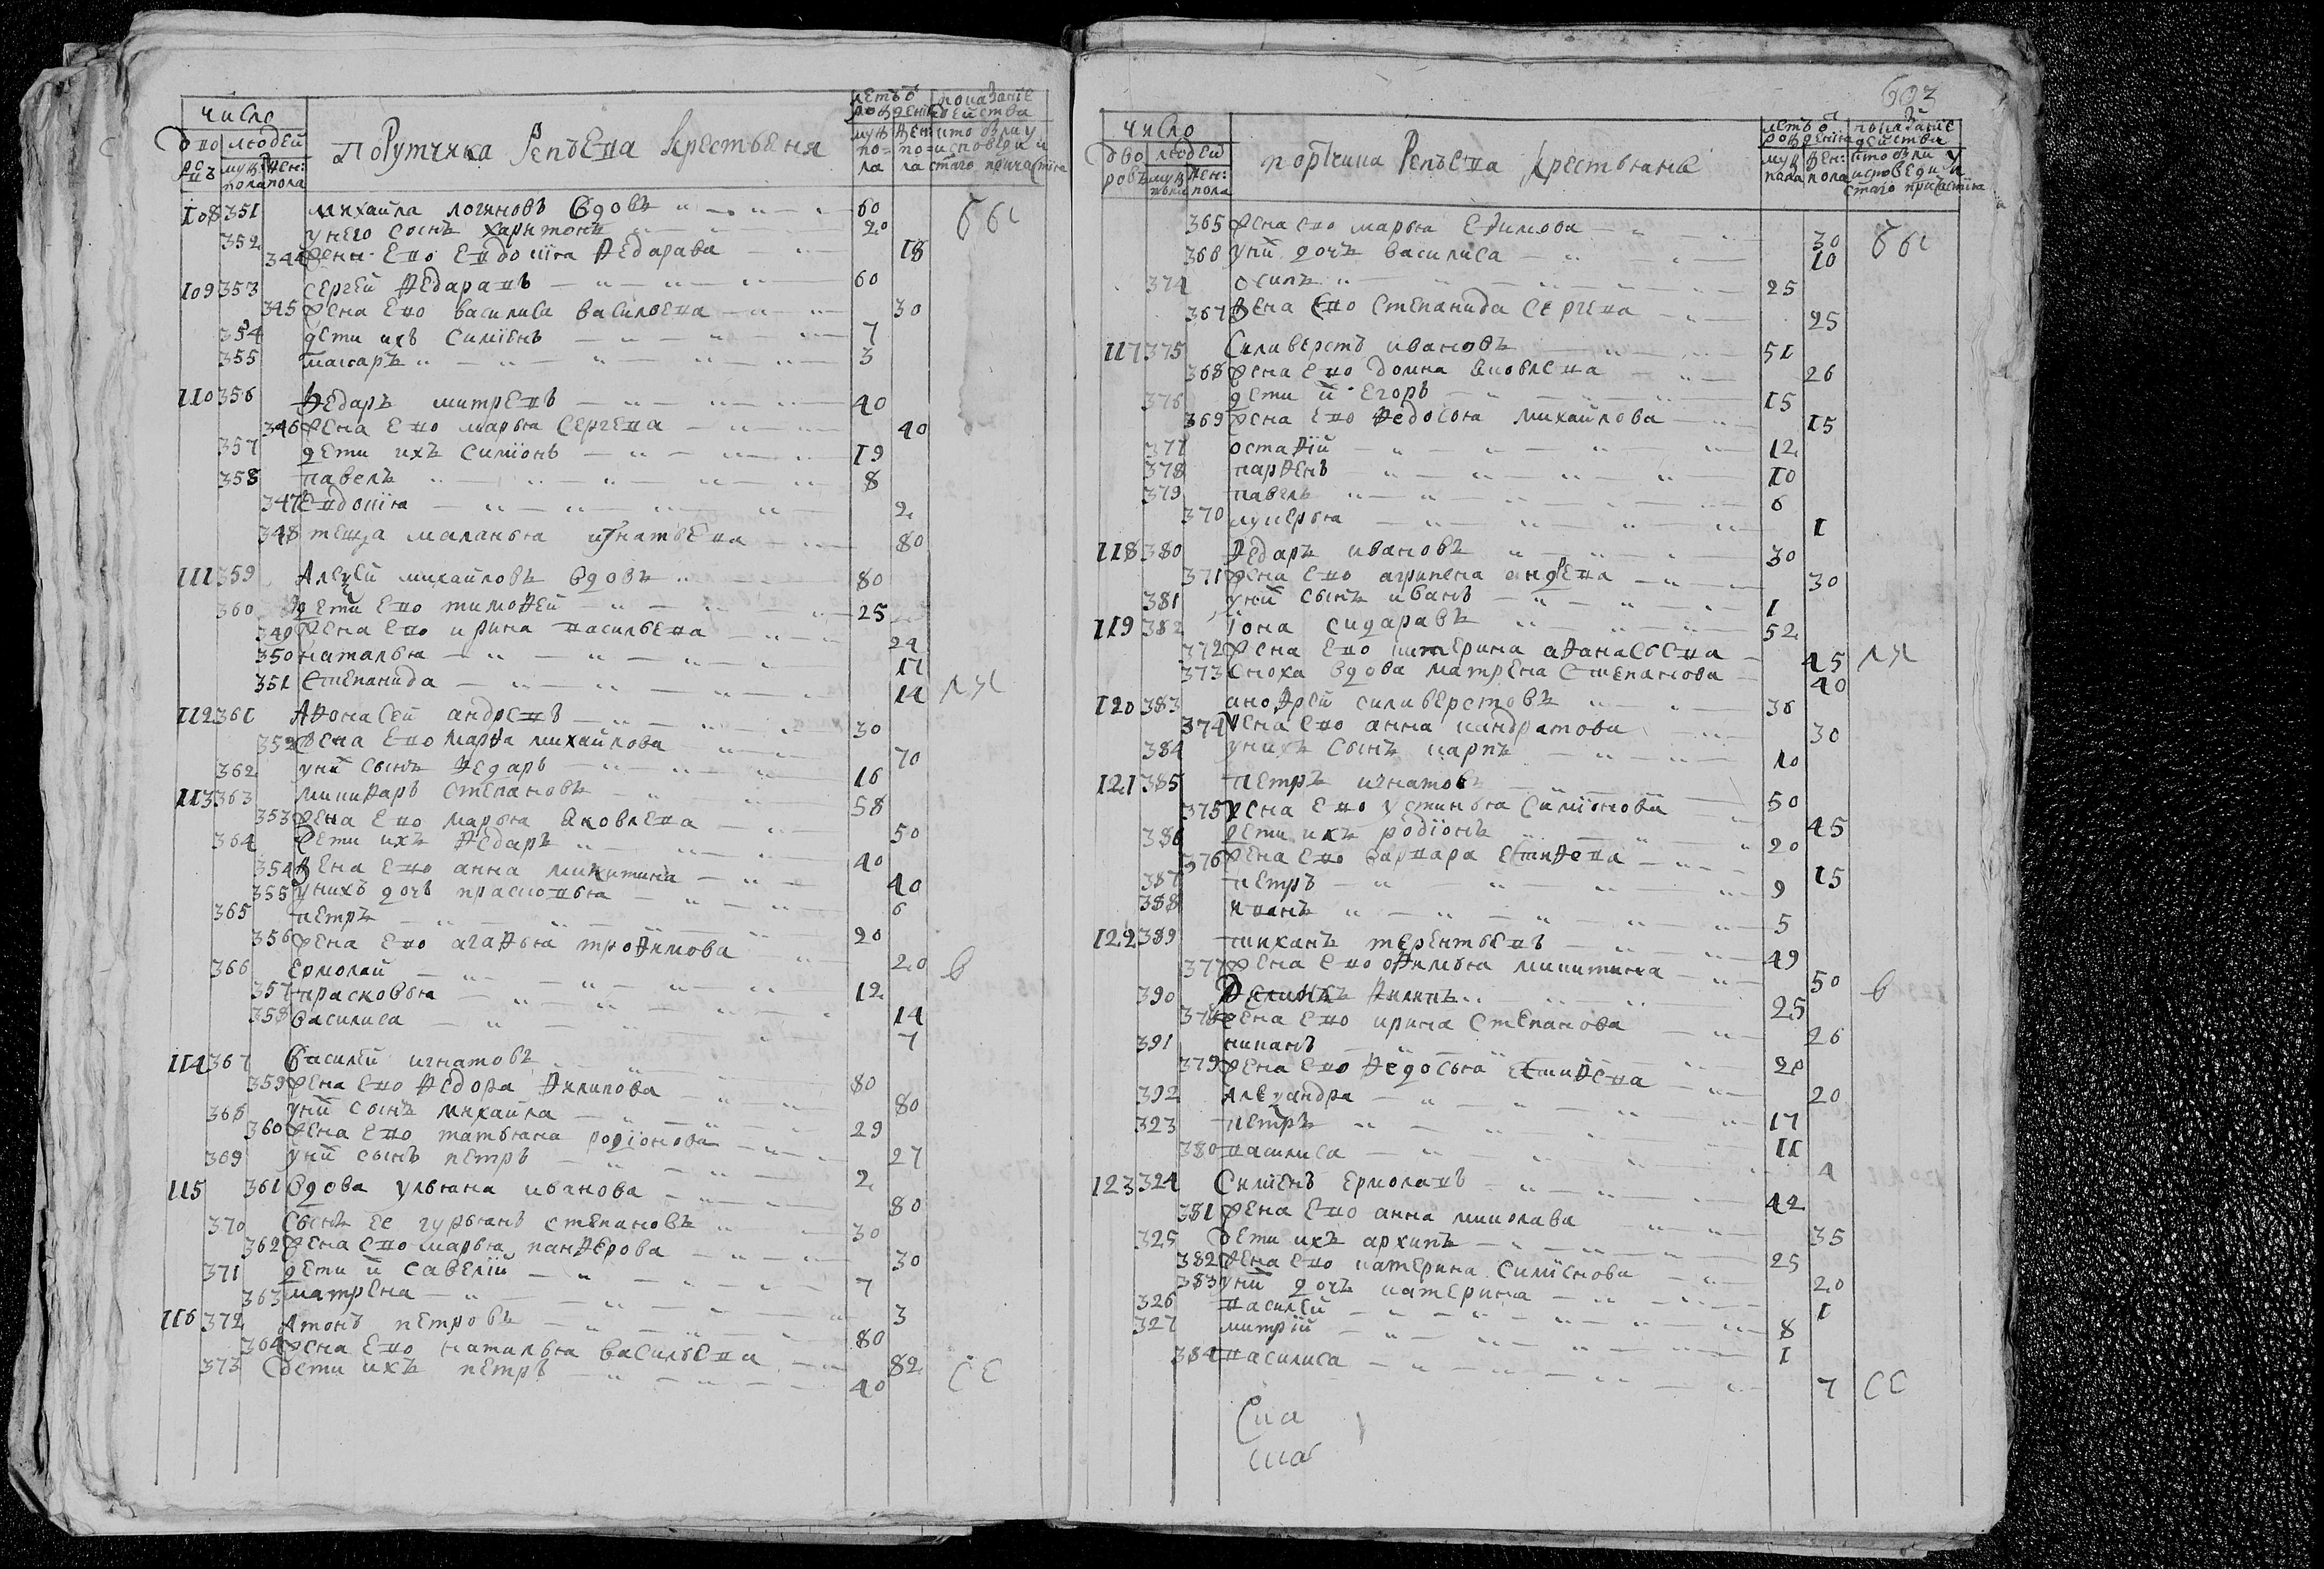 число
дво ровъ
людей
муж: пола
жен: пола
Порутчика Репьева крестьеня
летъ ѿ рождения
муж по=ла
жен: по=ла
показание действа
кто были у исповеди и стаго причастия
108 351 михайла логиновъ вдовъ 60 бы
352 у него сынъ харитонъ 20
344 жена ево евдокия федарава 18
109 353 сергей федаравъ 60
345 жена ево василиса васильева 30
354 дети ихъ симиенъ 7
355 макаръ 3
110 356 федаръ митревъ 40
346 жена ево марья сергева 40
357 дети ихъ симионъ 19
358 павелъ 8
347 евдокия 2
348 теща маланья игнатьева 80
111 359 Алеѯей михайловъ вдовъ 80
360 дети ево тимофей 25
349 жена ево ирина васильева 24
350 наталья 17
351 степанида 14 ли
112 361 Афонасей андревъ 30
352 жена ево марфа михайлова 70
362 у ни сынъ федаръ 16
113 363 никифаръ степановъ 58
353 жена ево марья яковлева 50
364 дети ихъ федаръ 40
354 жена ево анна микитина 40
355 у нихъ дочь прасковья 6
365 петръ 20
356 жена ево агафья трофимова 20 в
366 ермолай 12
357 прасковья 14
358 василиса 7
114 367 василей игнатовъ 80
359 жена ево федора филипова 80
368 у ни сынъ михайла 29
360 жена ево татьяна родионова 27
369 у ни сынъ петръ 2
115 361 вдова ульяна иванова 80
370 сынъ ее гурьянъ степановъ 30
362 жена ево марья панферова 30
371 дети и савелий 7
363 матрена 3
116 372 Атонъ петровъ 80
364 жена ево наталья васильева 82
373 дети ихъ петръ 40 се
603
число
дво ровъ
людей
муж: пола
жен: пола
порткика Репьева крестьяне
летъ ѿ рождения
муж пала
жен: пола
показание действа
кто были у исповеди и стаго причастия
365 жена ево марья ефимова 30 бы
366 у ни дочь василиса 10
374 осипъ 25
367 жена ево степанида сергева 25
117 375 Силиверстъ ивановъ 51
368 жена ево домна яковлева 26
376 дети и егоръ 15
369 жена ево федосья михайлова 15
377 остафий 12
378 парфенъ 10
379 павелъ 6
370 лукерья 1
118 380 федаръ ивановъ 30
371 жена ево агрипена андрева 30
381 у ни сынъ иванъ 1
119 382 иона сидаравъ 52
372 жена ево катерина афанасьева 45 ли
373 сноха вдова матрена степанова 40
120 383 андрей силиверстовъ 36
374 жена ево анна кандратова 30
384 у нихъ сынъ карпъ 10
121 385 петръ игнатовъ 50
375 жена ево устинья симионова 45
386 дети ихъ родионъ 20
376 жена ево варвара естифева 15
387 петръ 9
388 иванъ 5
122 389 тиханъ терентьевъ 49
377 жена ево офимья микитина 50 в
390 филипъ 25
378 жена ево ирина степанова 26
391 никанъ 20
379 жена ево федосья естифева 20
392 алеѯандра 17
323 петръ 11
380 василиса 4
123 324 Симиенъ ермолавъ 42
381 жена ево анна миколава 35
325 дети ихъ архипъ 25
382 жена ево катерина симиенова 20
383 у ни дочь катерина 1
326 василей 8
327 митрий 1
384 василиса 7 се